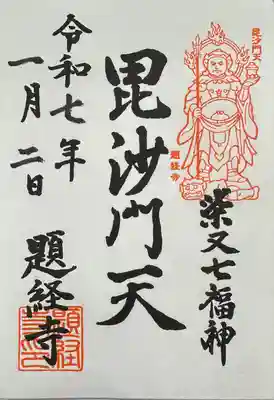 毘沙門天
題経寺
柴又七福神
毘沙門天
令和七年
一月二日
題経寺
題経寺